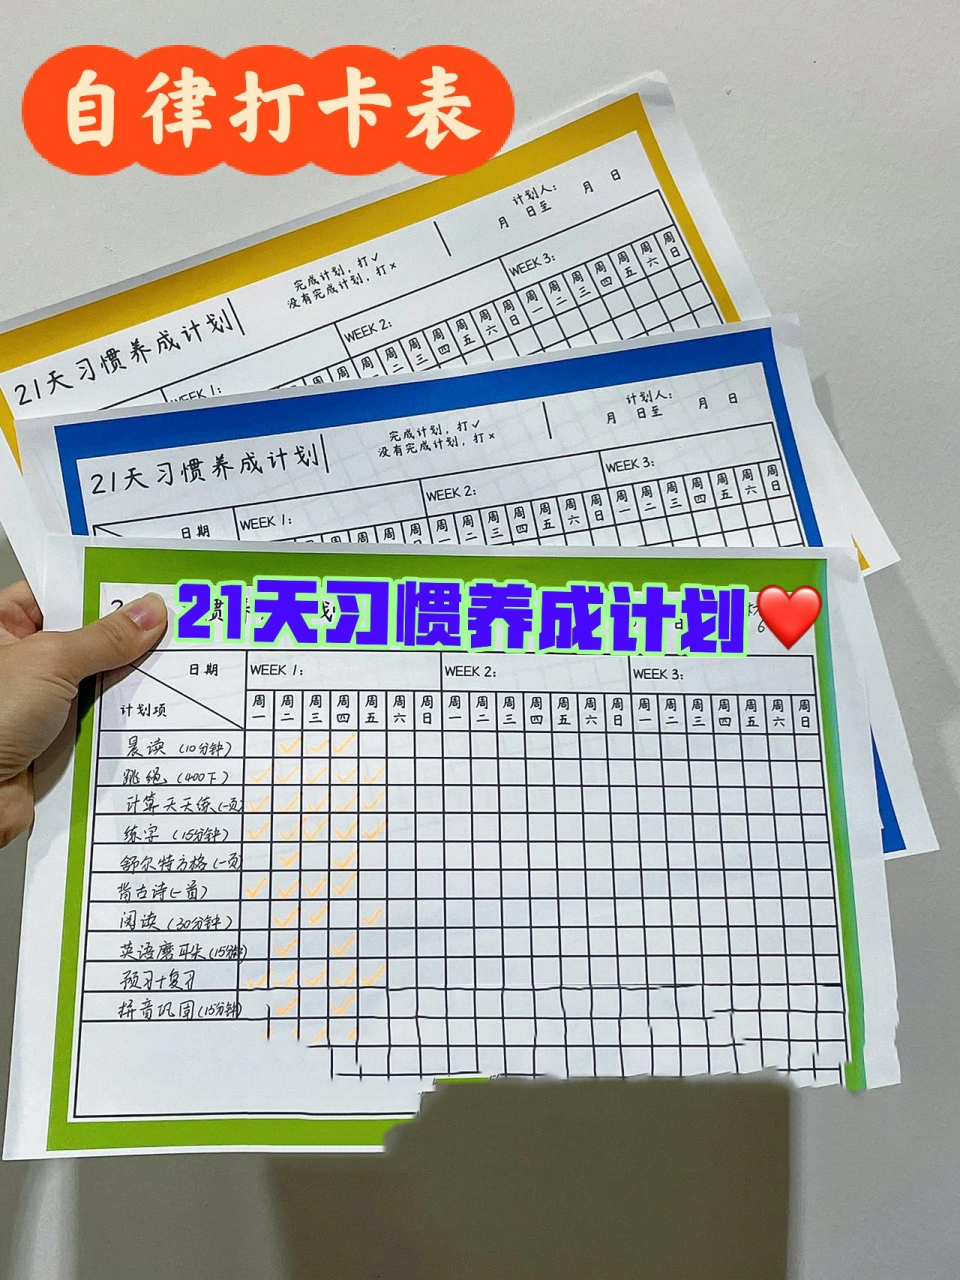 自律打卡表
计划人：
月 日至 月 日
完成计划，打✓
没有完成计划，打×
21天习惯养成计划
WEEK 1:
WEEK 2:
WEEK 3:
周二 周三 周四 周五 周六 周日 周一 周二 周三 周四 周五 周六 周日
计划人：
月 日至 月 日
完成计划，打✓
没有完成计划，打×
21天习惯养成计划
日期
WEEK 1:
WEEK 2:
WEEK 3:
周四 周五 周六 周日 周一 周二 周三 周四 周五 周六 周日
21天习惯养成计划❤️
日期
WEEK 1:
WEEK 2:
WEEK 3:
计划项
周一 周二 周三 周四 周五 周六 周日 周一 周二 周三 周四 周五 周六 周日 周一 周二 周三 周四 周五 周六 周日
晨读（10分钟）
跳绳（400下）
计算天天练（一页）
练字（15分钟）
舒尔特方格（一页
背古诗（一首）
阅读（30分钟）
英语磨耳朵（15分钟）
预习+复习
拼音巩固（15分钟）